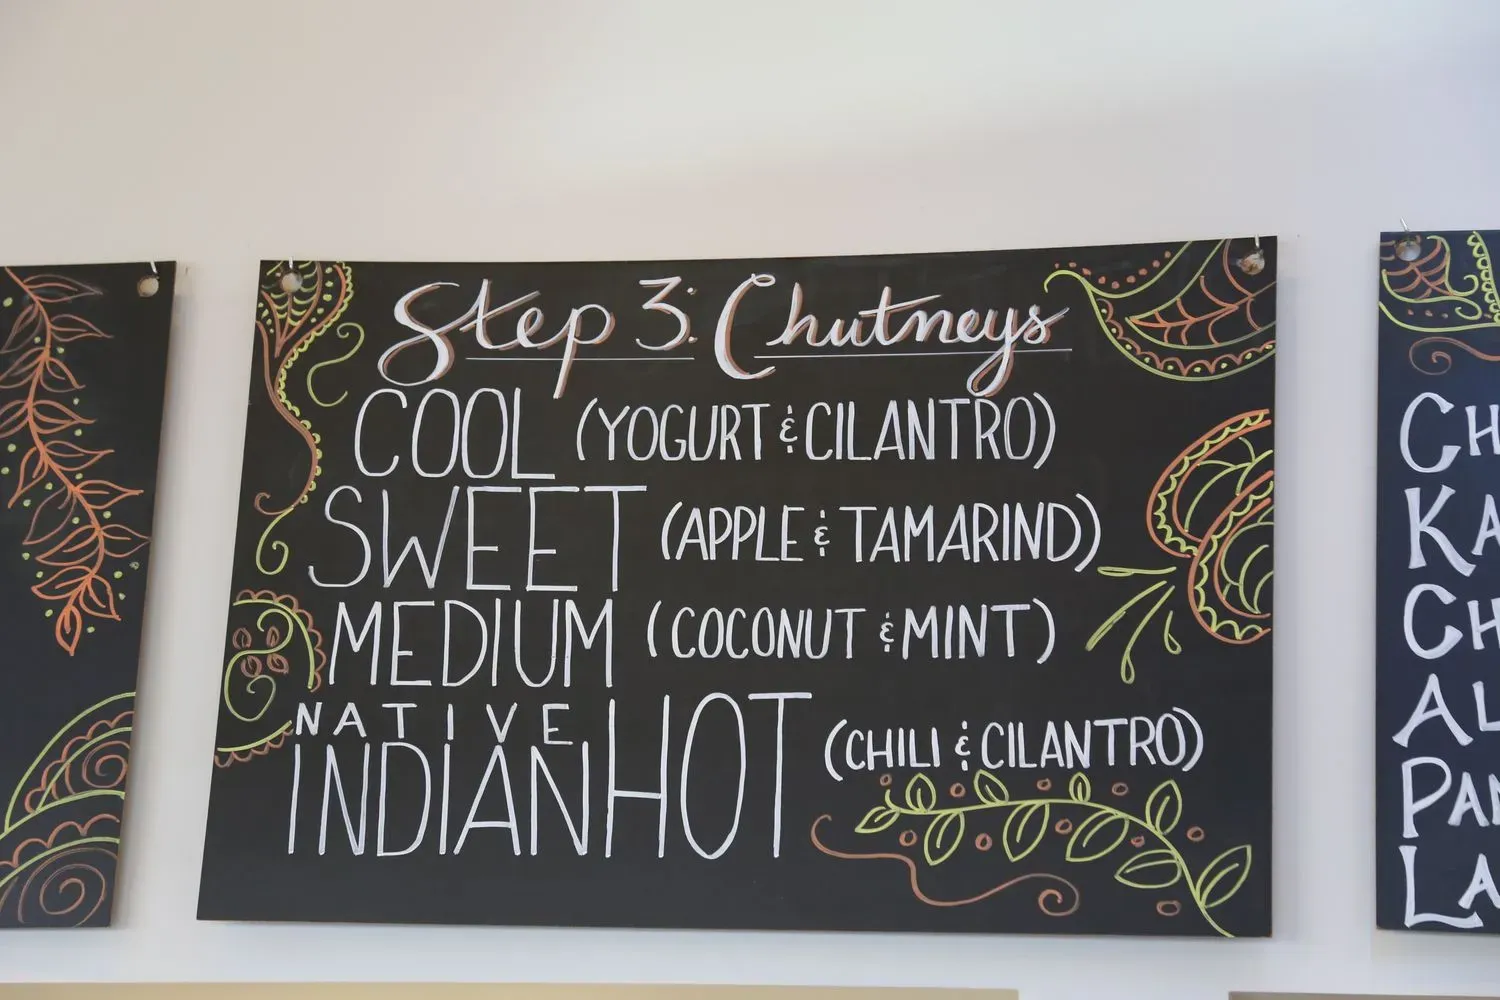 Step 3: Chutneys
COOL (YOGURT & CILANTRO)
SWEET (APPLE & TAMARIND)
MEDIUM (COCONUT & MINT)
NATIVE
INDIAN HOT (CHILI & CILANTRO)
CH
KA
CH
AL
PAN
LA